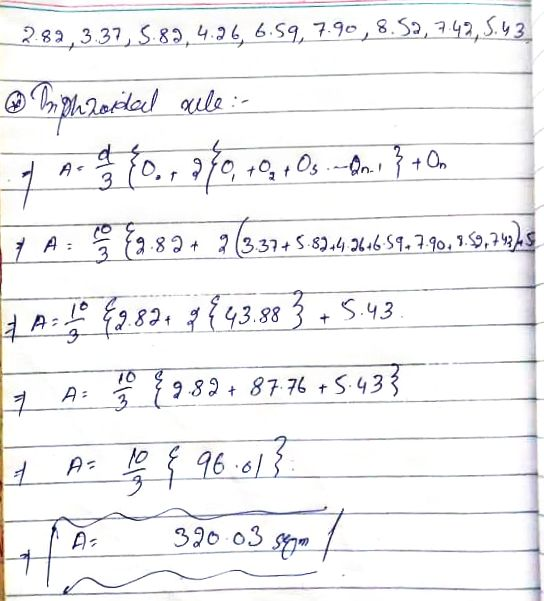 2.82, 3.37, 5.82, 4.26, 6.59, 7.90, 8.52, 7.42, 5.43
rule :-
⇒ A = d/3 {O₀ + 2{O₁ + O₂ + O₃ ... Oₙ₋₁} + Oₙ
⇒ A = 10/3 {2.82 + 2(3.37+5.82+4.26+6.59+7.90+8.52+7.43)+5
⇒ A = 10/3 {2.82 + 2{43.88} + 5.43.
⇒ A = 10/3 {2.82 + 87.76 + 5.43}
⇒ A = 10/3 {96.01}.
⇒ A = 320.03 sqm